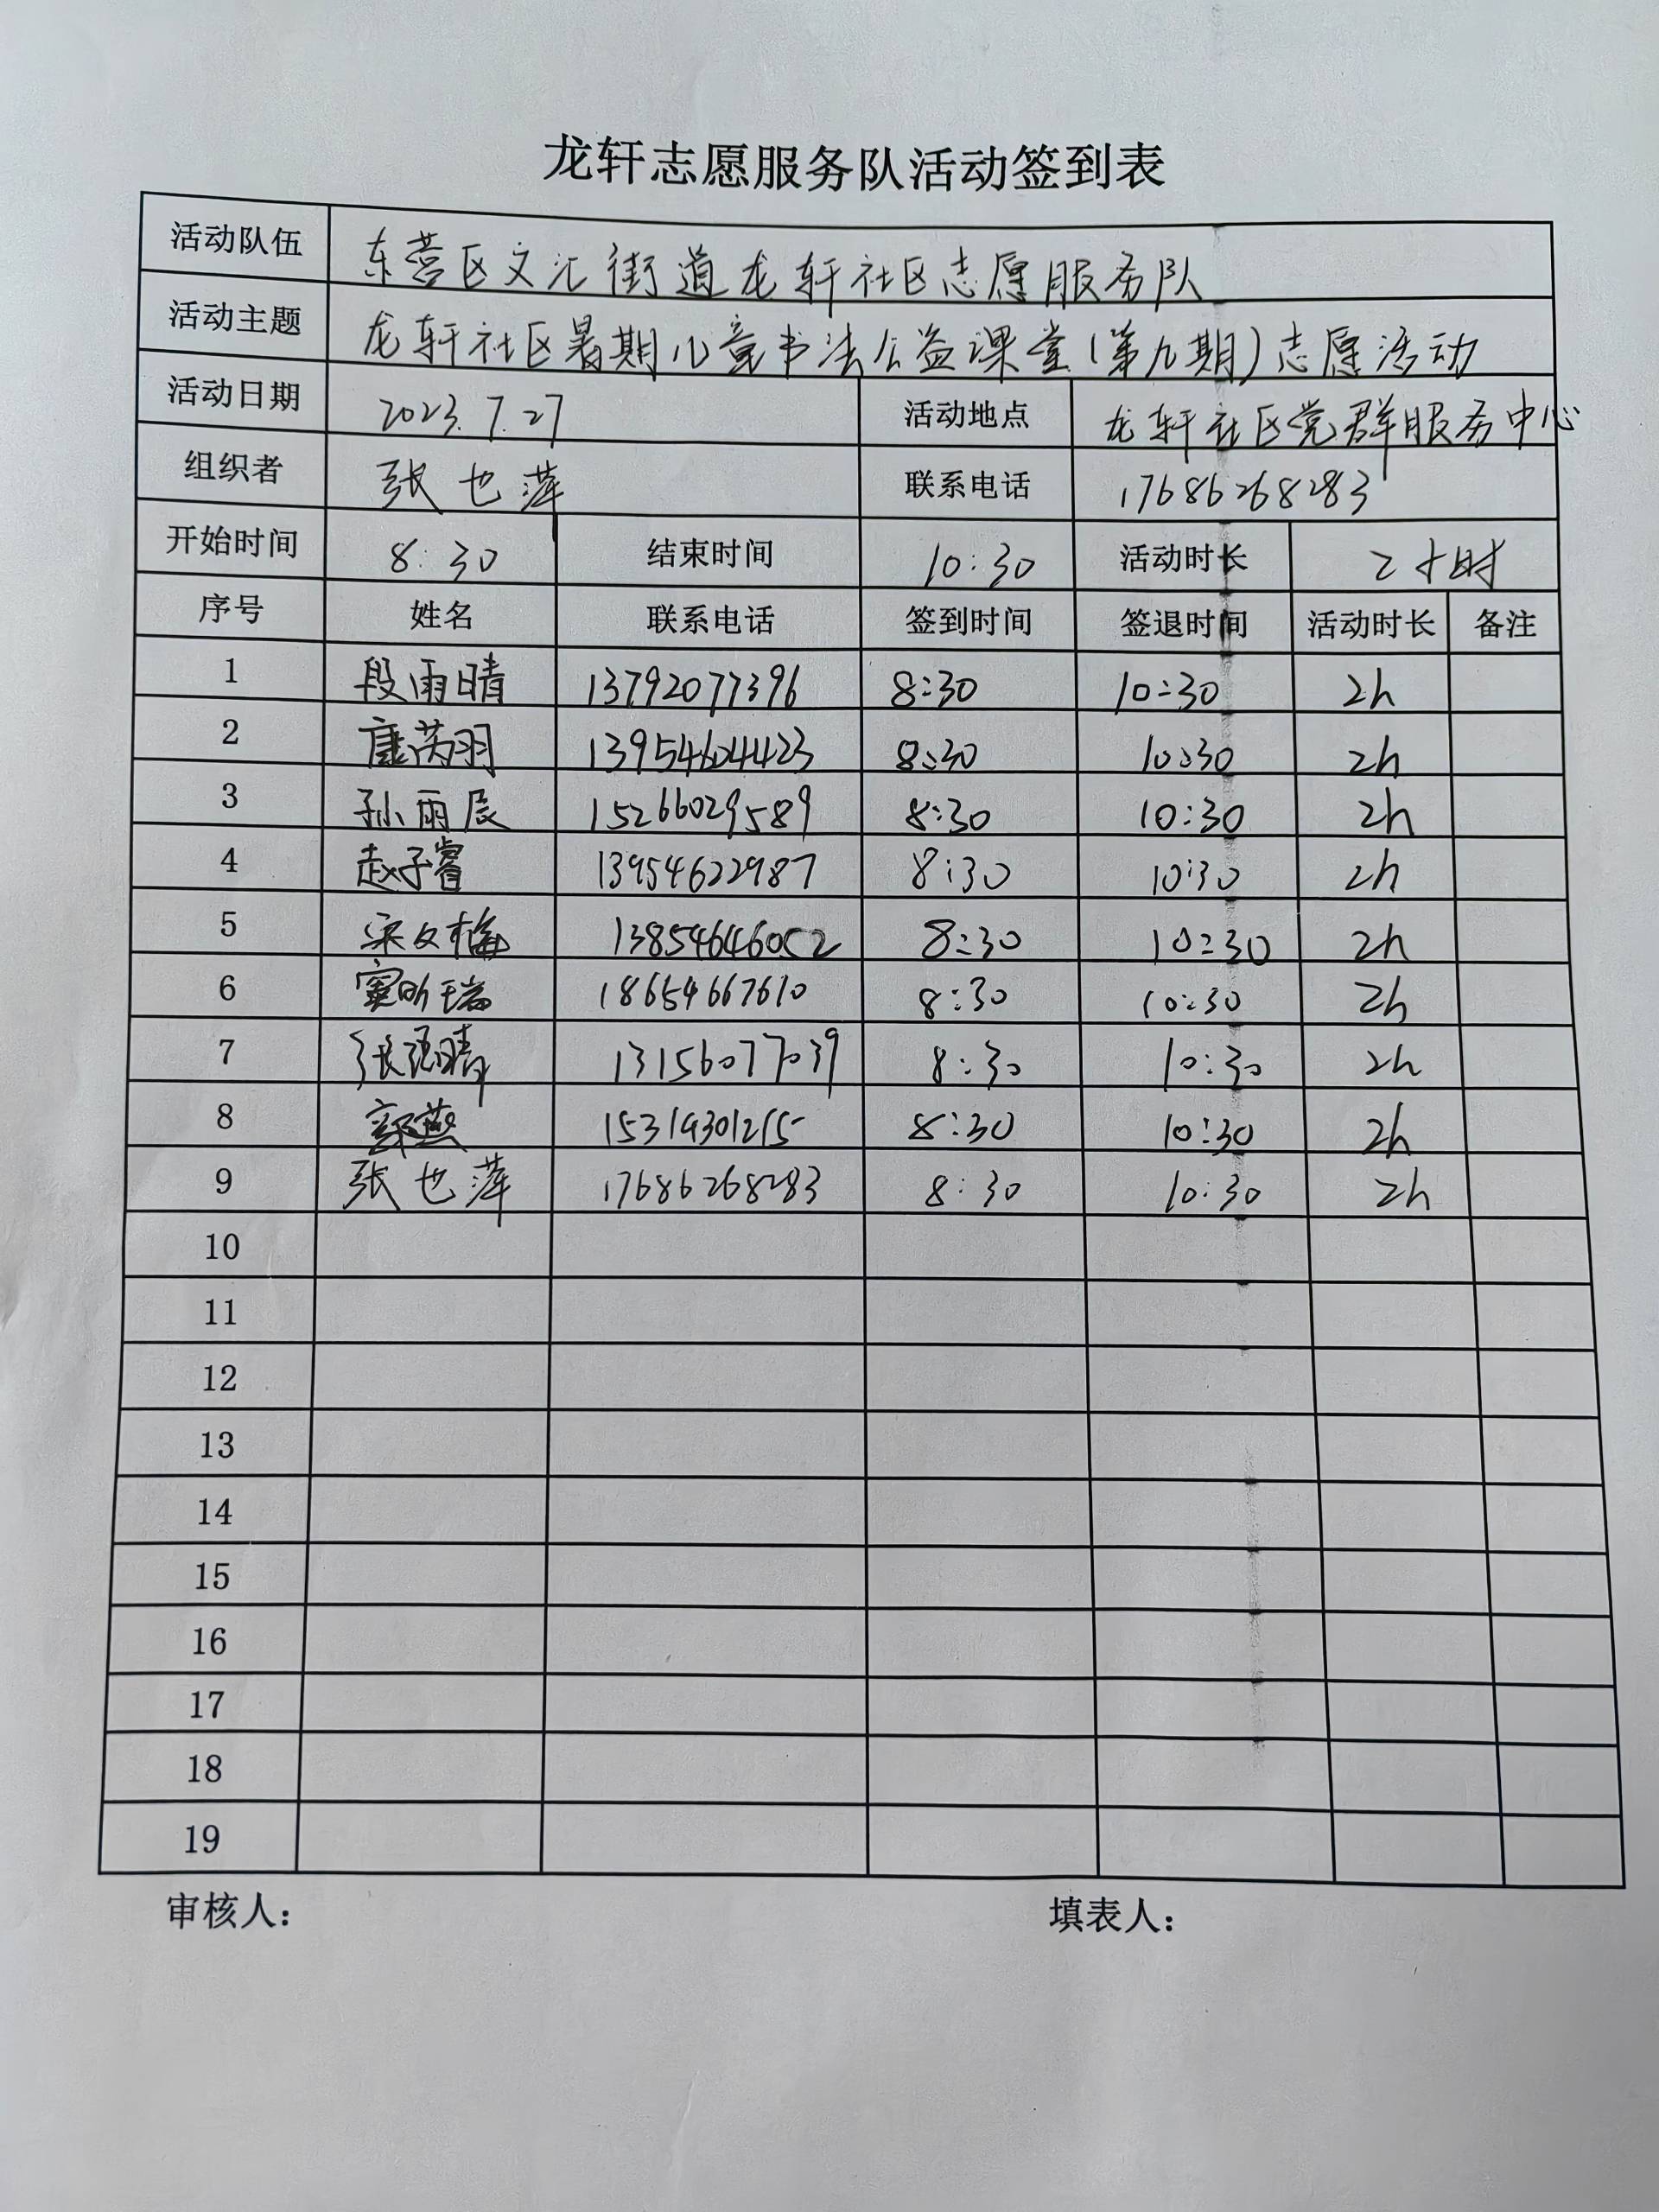 龙轩志愿服务队活动签到表
活动队伍 东营区文汇街道龙轩社区志愿服务队
活动主题 龙轩社区暑期儿童书法公益课堂(第九期)志愿活动
活动日期 2023.7.27 活动地点 龙轩社区党群服务中心
组织者 张也萍 联系电话 17686268283
开始时间 8:30 结束时间 10:30 活动时长 2小时
序号 姓名 联系电话 签到时间 签退时间 活动时长 备注
1 段雨晴 13792077396 8:30 10:30 2h
2 康芮羽 13954604423 8:30 10:30 2h
3 孙雨辰 15266029589 8:30 10:30 2h
4 赵子睿 13954622987 8:30 10:30 2h
5 宋文梅 13854646052 8:30 10:30 2h
6 窦昕瑞 18654667610 8:30 10:30 2h
7 13156077039 8:30 10:30 2h
8 郭燕 15314301215 8:30 10:30 2h
9 张也萍 17686268283 8:30 10:30 2h
10
11
12
13
14
15
16
17
18
19
审核人: 填表人: